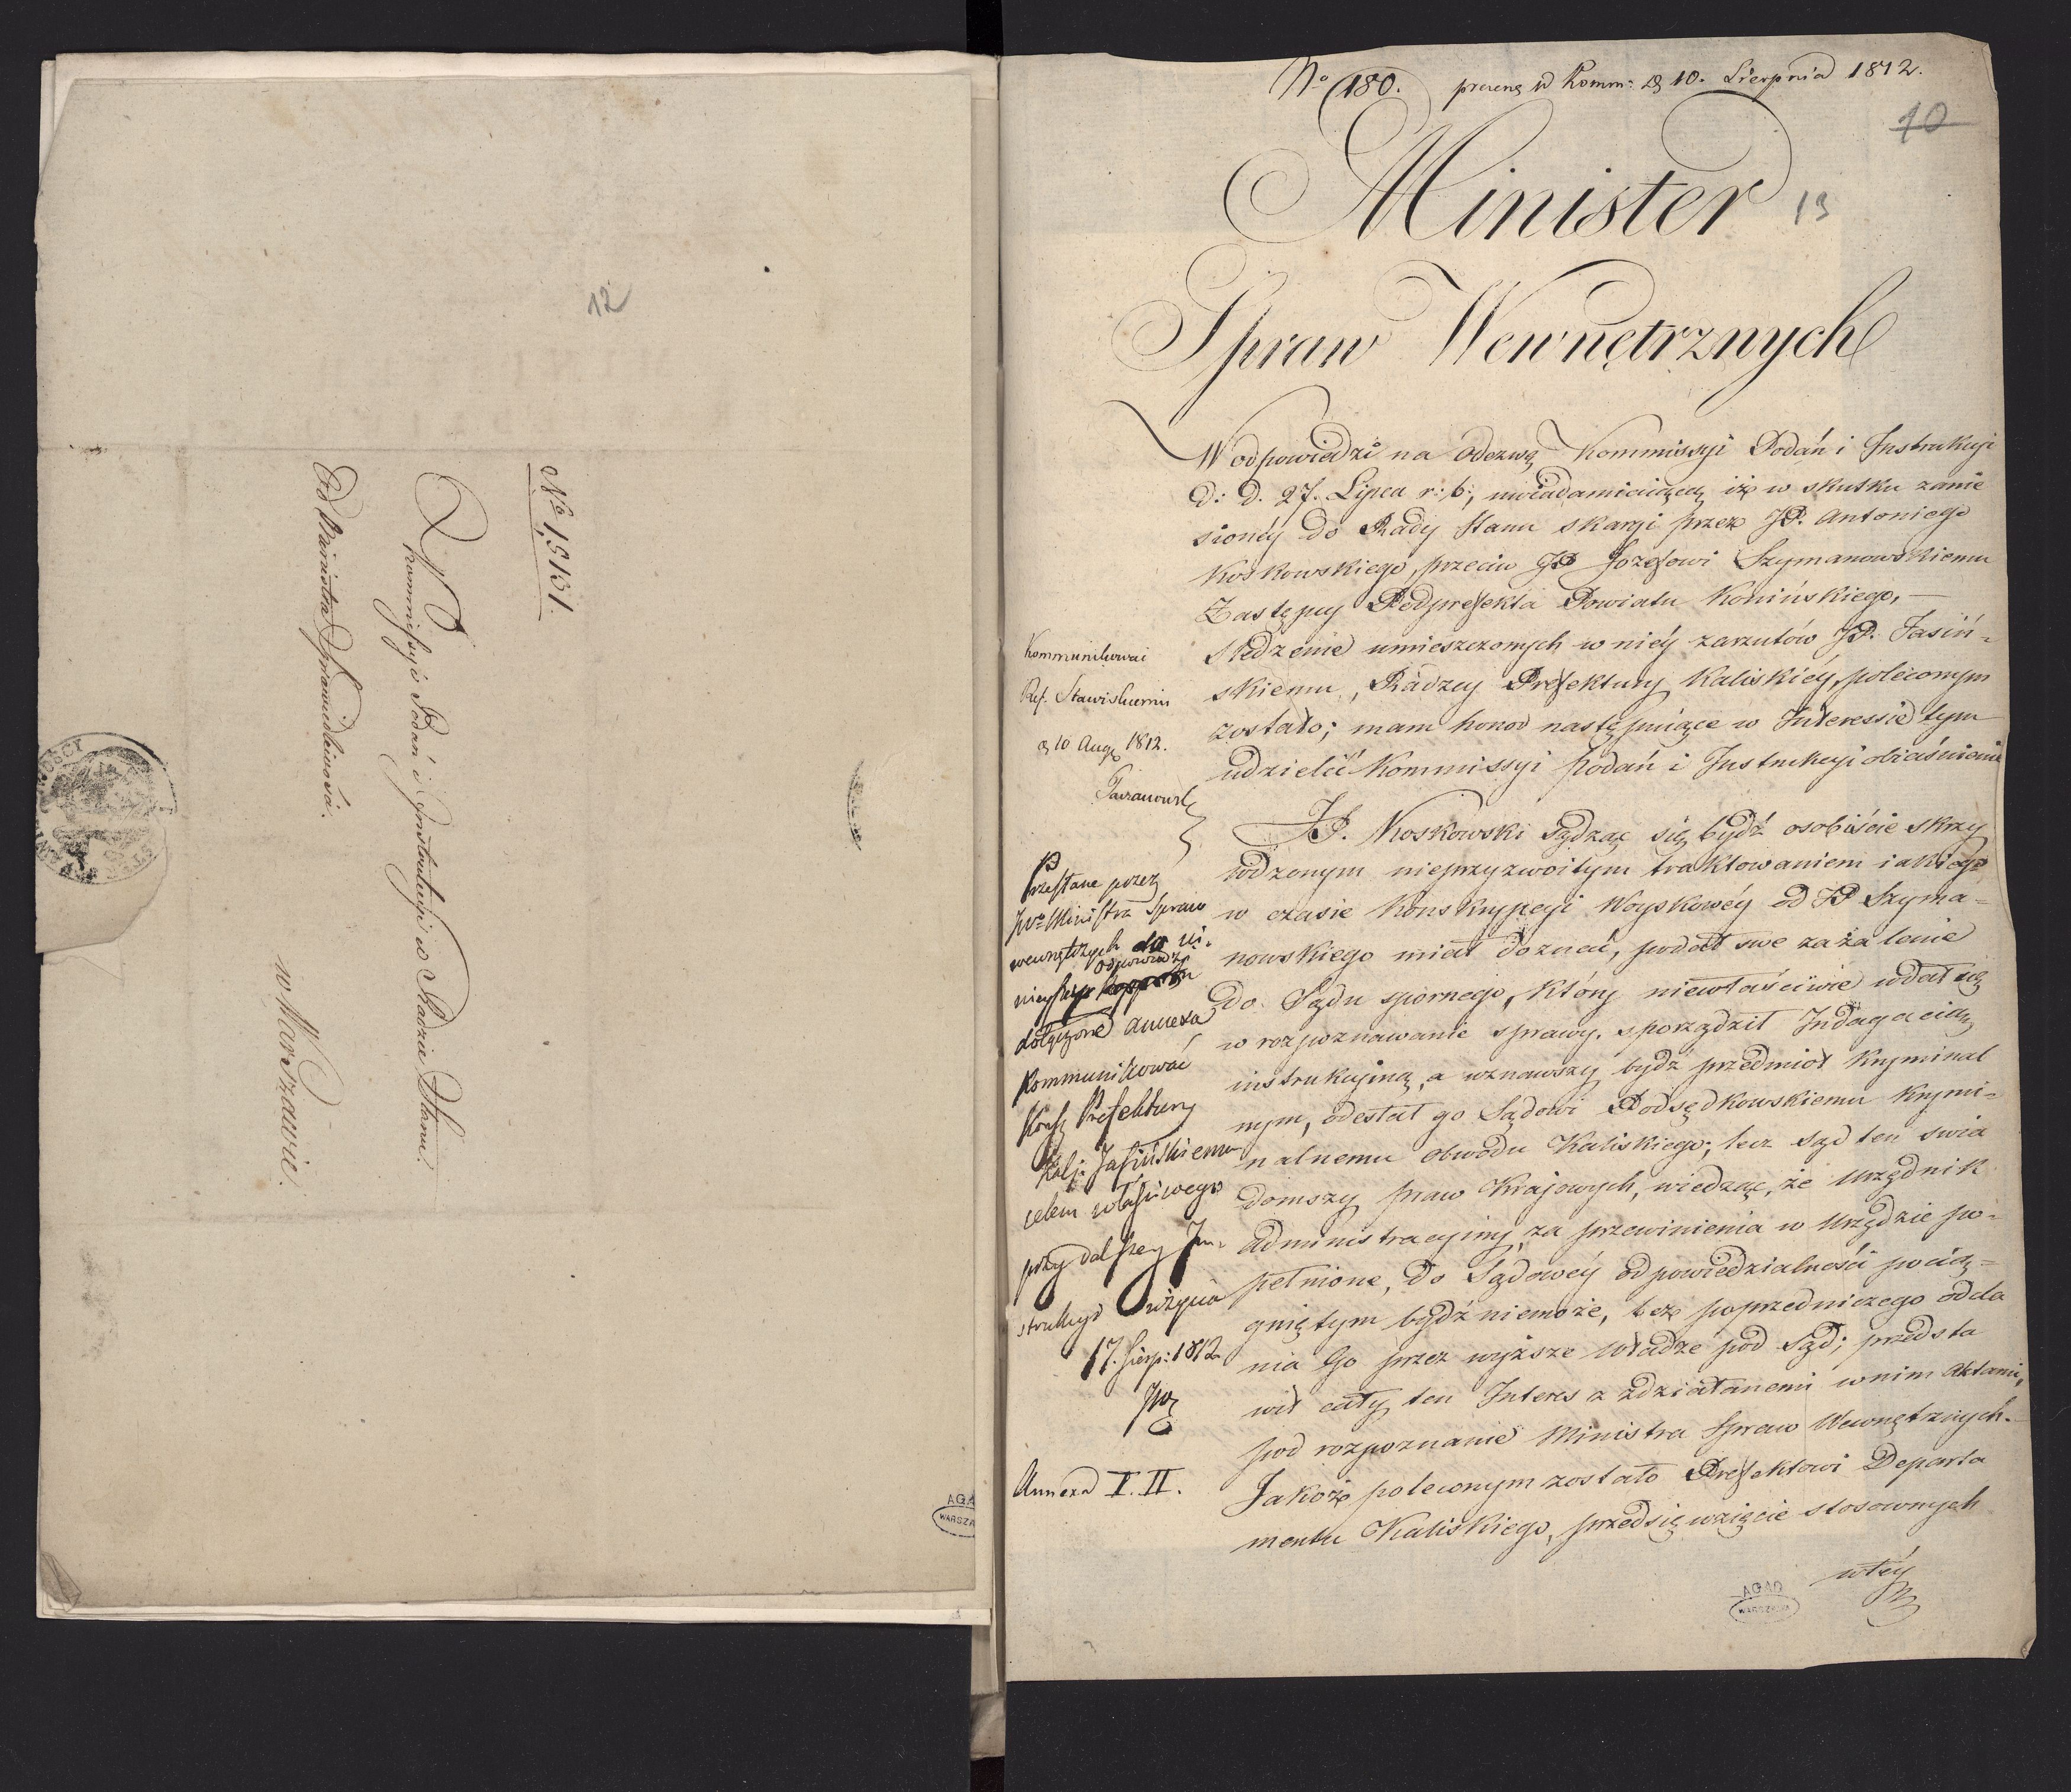 12
No 1,5131.
Do
Kommissyi Podań i Instrukcyi w Radzie Stanu.
Od Ministra Sprawiedliwości.
w Warszawie.
AGA
WARSZA
No 180. prezen: w Komm: d 10. Sierpnia 1812.
10
Minister
13
Spraw Wewnętrznych
W odpowiedzi na Odezwę Kommissyi Podań i Instrukcyi
d: d. 27. Lipca r: b:, uwiadamiaiącą iż w skutku zanie
sionéy do Rady Stanu skargi przez JP. Antoniego
Koskowskiego, przeciw JP Jozefowi Szymanowskiemu
Zastępcy Podprefekta Powiatu Konińskiego,
śledzenie umieszczonych w niéy zarzutów JP. Jasiń-
skiemu, Radzcy Prefektury Kaliskiéy, poleconym
zostało; mam honor następuiące w Interessie tym
udzielić Kommissyi podań i Instrukcyi obiaśnienie
JP. Koskowski sądząc się bydź osobiście skrzy
wdzonym nieprzyzwoitym traktowaniem iakiego
w czasie Konskrypcyi Woyskowéy od JP Szyma-
nowskiego miał doznać, podał swe zażalenie
do Sądu spornego, który niewłaściwie wdał się
w rozpoznawanie sprawy, sporządził Indagacią
instrukcyiną, a uznawszy bydź przedmiot kryminal
nym, odesłał go Sądowi Podsędkowskiemu Krymi-
nalnemu obwodu Kaliskiego; lecz Sąd ten świa
domszy praw Krajowych, wiedząc, że Urzędnik
administracyiny za przewinienia w Urzędzie po-
pełnione, do Sądowéy odpowiedzialności pocią-
gniętym bydź niemoże, bez poprzedniczego odda
nia Go przez wyższe władze pod Sąd; przedsta
wił cały ten Interes z zdziałanemi w nim Aktami,
pod rozpoznanie Ministra Spraw Wewnętrznych.
Jakoż poleconym zostało Prefektowi Departa
mentu Kaliskiego, przedsięwzięcie stosownych
w téy
Kommunikować
Ref. Stawiskiemu
d 10 Aug 1812.
Przesłane przez
JW Ministra Spraw
wewnętrznych do ni-
nieyszey odpowiedzi
dołączone annexa
Kommunikować
Radzcy Prefektury
Kalis: Jasińskiemu
celem właściwego
przy dalszey In-
strukcyi użycia
17. Sierp: 1812
Annexa I. II.
AGAD
WARSZAWA